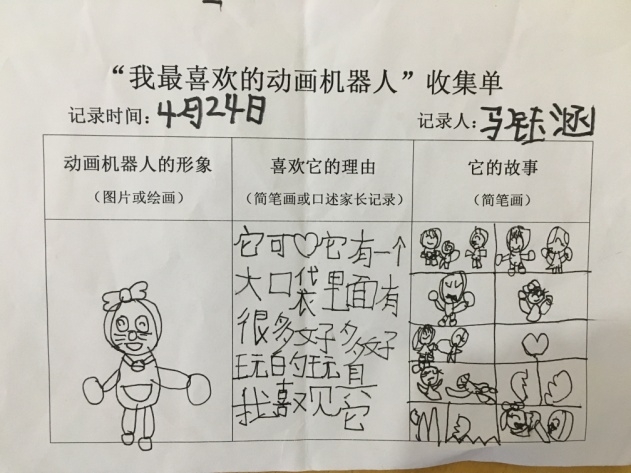 “我最喜欢的动画机器人”收集单
记录时间：4月24日 记录人：马钰涵
动画机器人的形象 喜欢它的理由 它的故事
（图片或绘画） （简笔画或口述家长记录） （简笔画）
它可♡它有一个
大口袋里面有
很多好多好
玩的玩具
我喜欢它